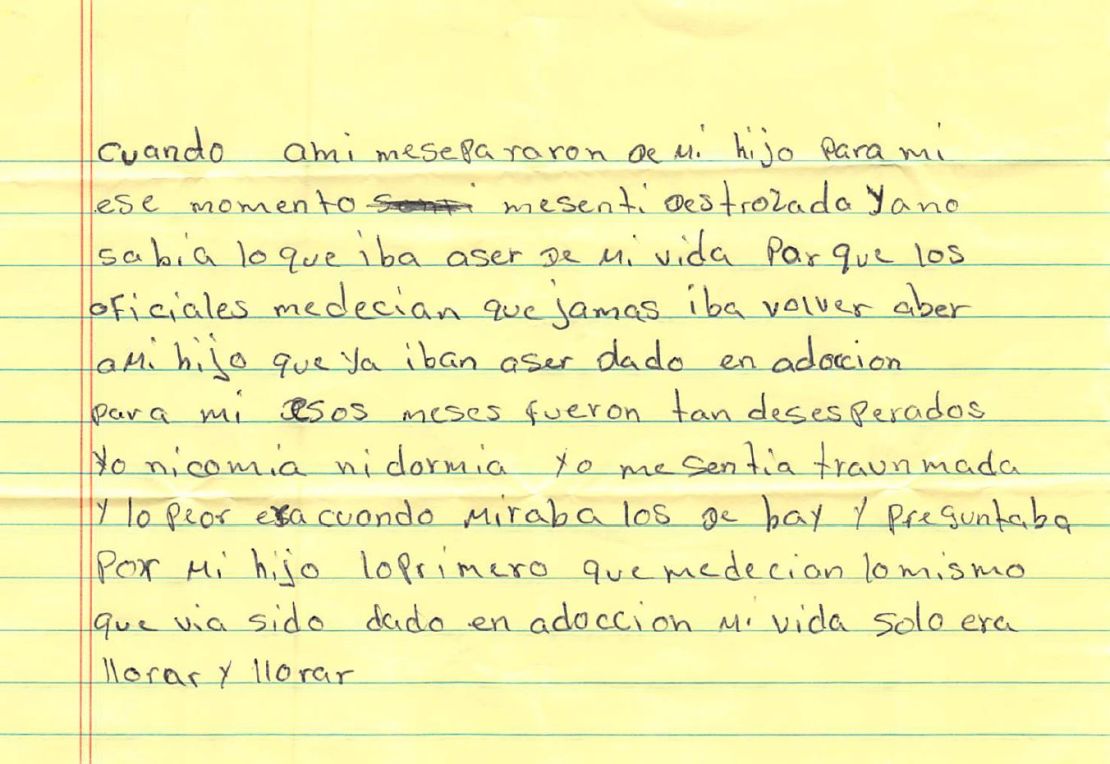 cuando ami mesepararon de mi hijo para mi
ese momento mesenti destrozada yano
sabia loque iba aser de mi vida Par que los
oficiales medecian que jamas iba volver aber
ami hijo que ya iban aser dado en adoccion
para mi esos meses fueron tan desesperados
yo nicomia nidormia yo me sentia traunmada
y lo peor era cuando miraba los de bay y preguntaba
por mi hijo loprimero que medecian lomismo
que via sido dado en adoccion mi vida solo era
llorar y llorar